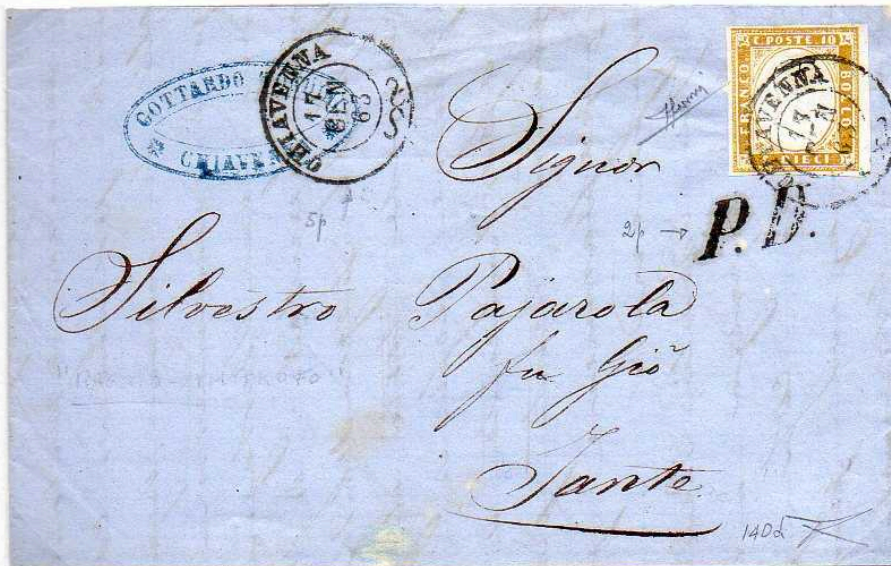 GOTTARDO
CHIAVE
CHIAVENNA
17
GEN
63
C. POSTE 10
FRANCO
BOLLO
DIECI
CHIAVENNA
17
Signor
5p
2p → P. D.
Silvestro Pajarola
fu Gio
Sante
140d